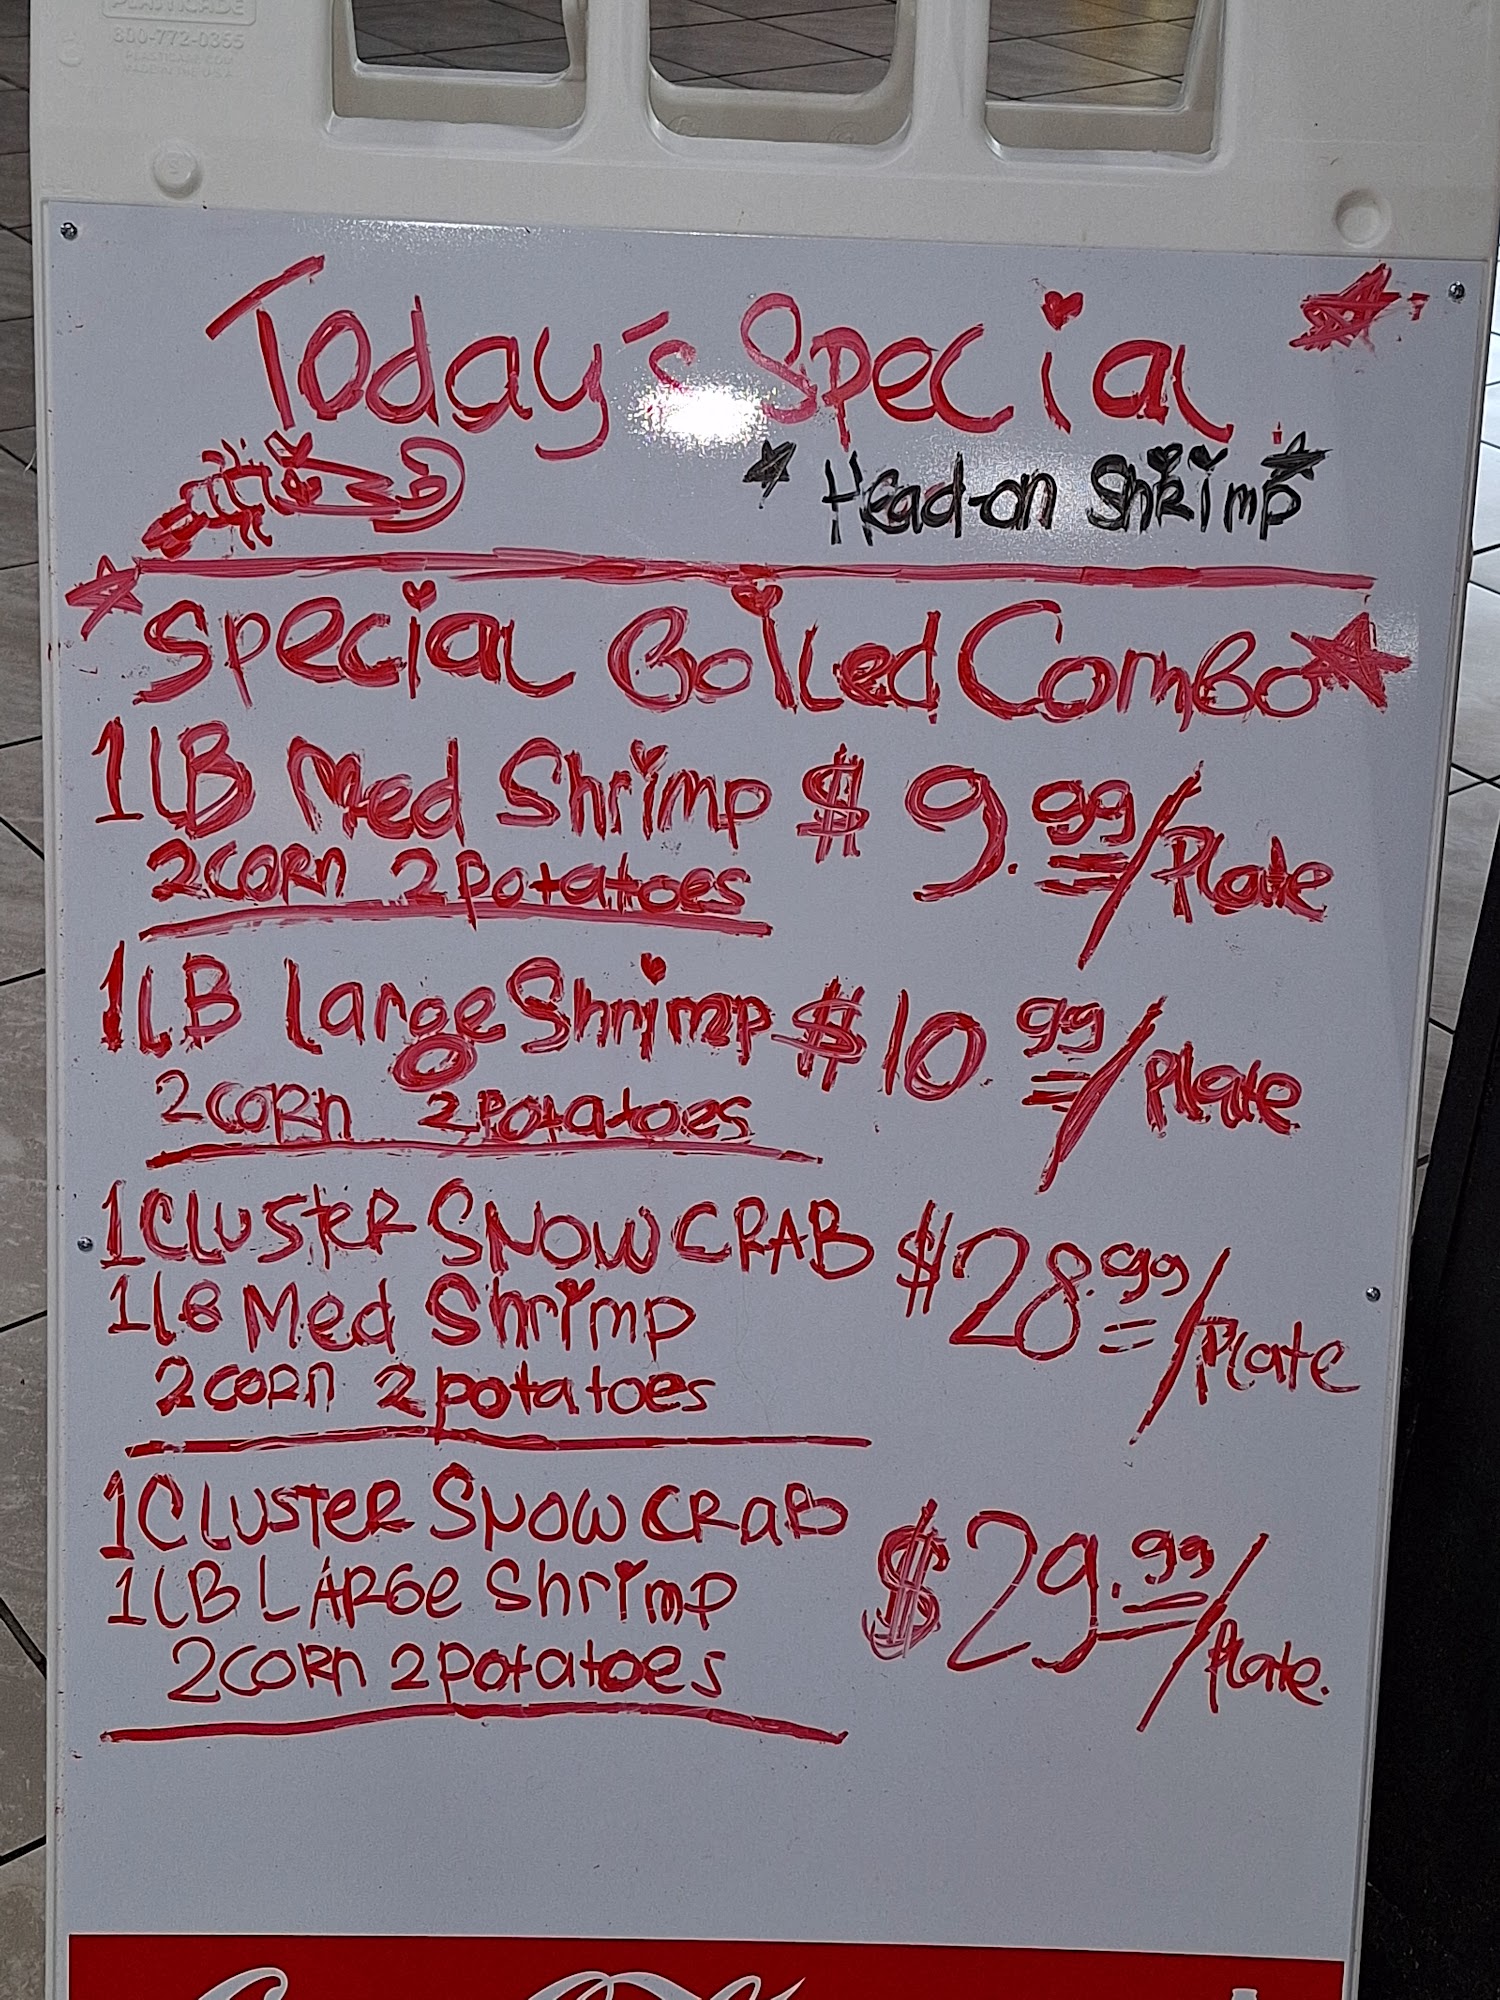 PLASTICADE
800-772-0355
PLASTICADE.COM
MADE IN THE U.S.A.
Today's Special
Head-on Shrimp
Special Boiled Combo
1LB Med Shrimp $9.99/Plate
2 corn 2 potatoes
1LB Large Shrimp $10.99/Plate
2 corn 2 potatoes
1 CLUSTER SNOW CRAB $28.99/Plate
1LB Med Shrimp
2 corn 2 potatoes
1 CLUSTER SNOW CRAB $29.99/Plate.
1LB LARGE Shrimp
2 corn 2 potatoes